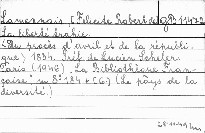 Lamennais (Félicité Robert de) 8° P. 11432
La liberté trahie.
(Du procès d'avril et de la républi-
que) 1834. Préf. de Lucien Scheler.
Paris (1946). La Bibliothèque Fran-
çaise. in 8° 134 + (6). (Le pays de la
diversité.)